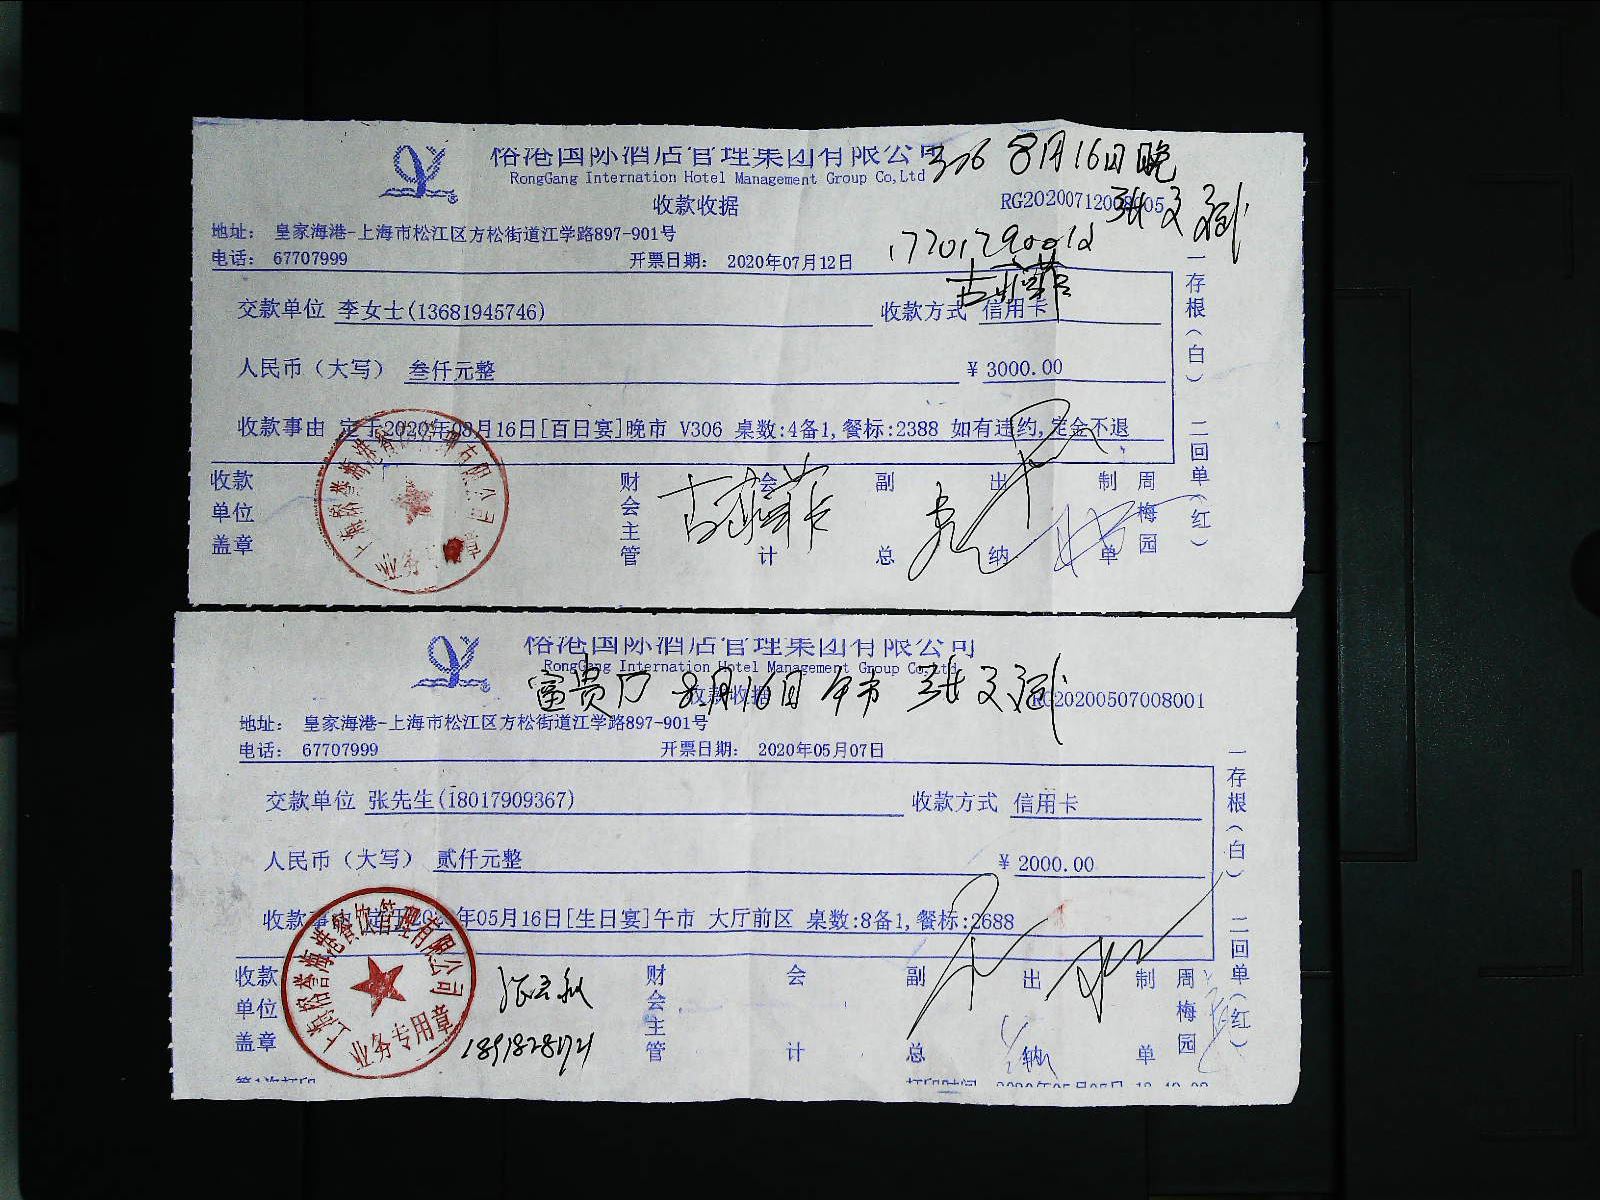 榕港国际酒店管理集团有限公司
306 8月16日晚
RongGang Internation Hotel Management Group Co,Ltd
收款收据
RG20200712008005
张文斌
地址： 皇家海港-上海市松江区方松街道江学路897-901号
电话： 67707999
开票日期： 2020年07月12日
交款单位 李女士(13681945746)
收款方式 信用卡
人民币（大写） 叁仟元整
¥ 3000.00
收款事由 定于2020年08月16日[百日宴]晚市 V306 桌数:4备1,餐标:2388 如有违约,定金不退
收款单位盖章
财会主管
会计
副总
出纳
制单
周梅园
一存根（白） 二回单（红）
业务
榕港国际酒店管理集团有限公司
RongGang Internation Hotel Management Group Co,Ltd
收款收据
富贵厅 8月16日 午市 张文斌
RG20200507008001
地址： 皇家海港-上海市松江区方松街道江学路897-901号
电话： 67707999
开票日期： 2020年05月07日
交款单位 张先生(18017909367)
收款方式 信用卡
人民币（大写） 贰仟元整
¥ 2000.00
收款事由 定于2020年05月16日[生日宴]午市 大厅前区 桌数:8备1,餐标:2688
收款单位盖章
财会主管
会计
副总
出纳
制单
周梅园
一存根（白） 二回单（红）
上海榕誉海港餐饮管理有限公司
业务专用章